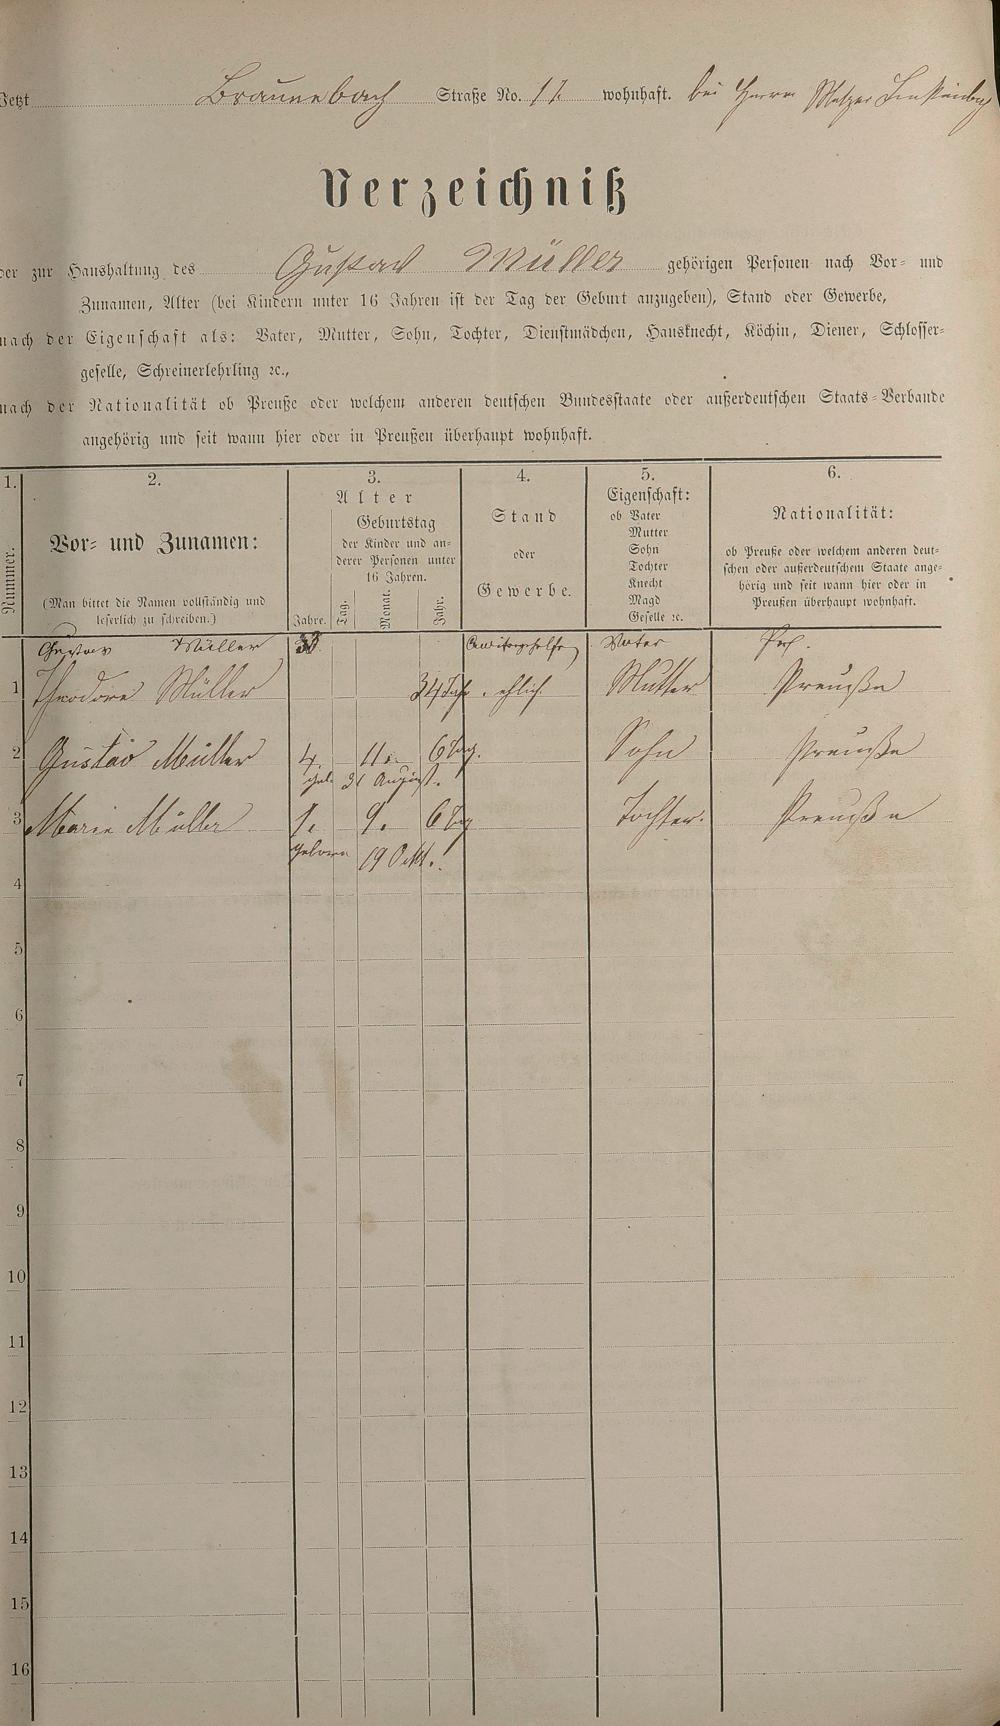 Jetzt Braunebach Straße No. 11 wohnhaft. bei Herrn Metzger
Verzeichniß
der zur Haushaltung des Gustav Müller gehörigen Personen nach Vor- und
Zunamen, Alter (bei Kindern unter 16 Jahren ist der Tag der Geburt anzugeben), Stand oder Gewerbe,
nach der Eigenschaft als: Vater, Mutter, Sohn, Tochter, Dienstmädchen, Hausknecht, Köchin, Diener, Schlosser-
geselle, Schreinerlehrling ꝛc.,
nach der Nationalität ob Preuße oder welchem anderen deutschen Bundesstaate oder außerdeutschen Staats-Verbande
angehörig und seit wann hier oder in Preußen überhaupt wohnhaft.
1. 2. 3. 4. 5. 6.
Nummer.
Vor- und Zunamen:
(Man bittet die Namen vollständig und
leserlich zu schreiben.)
Alter
Jahre.
Geburtstag
der Kinder und an-
derer Personen unter
16 Jahren.
Tag. Monat. Jahr.
Stand
oder
Gewerbe.
Eigenschaft:
ob Vater
Mutter
Sohn
Tochter
Knecht
Magd
Geselle ꝛc.
Nationalität:
ob Preuße oder welchem anderen deut-
schen oder außerdeutschem Staate ange-
hörig und seit wann hier oder in
Preußen überhaupt wohnhaft.
Gustav Müller 33 Vater Prß.
1 Theodore Müller 34 Jahr. ehlich. Mutter Preußse
2 Gustav Müller 4. 11. 6 Tag. Sohn Preußse
geb. 31 August.
3 Marie Müller 1. 9. 6 Tag Tochter. Preußse
geboren 19 Okt.
4
5
6
7
8
9
10
11
12
13
14
15
16